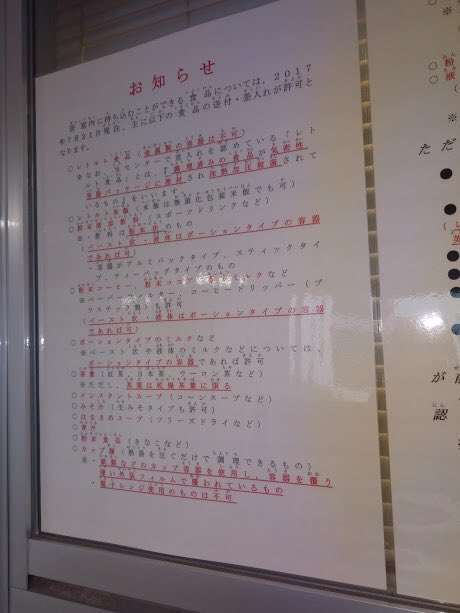 お知らせ
居室内に持ち込むことができる食品については，２０１７
年７月３１日現在，主に以下の食品の送付・差入れが許可と
なります。
○レトルト食品（金属製の容器は不可）
※なお，当センターで差入れを認めている「レト
ルト食品」とは，『調理済みの食品が気密性
容器パッケージに密封され加熱加圧殺菌されて
いるもの』をいいます。
○レトルト米飯（米飯は無菌化包装米飯でも可）
○粉末清涼飲料（スポーツドリンクなど）
※飲料は粉末状のもの
（ペースト状・液体はポーションタイプの容器
であれば可）
・容器がアルミパックタイプ，スティックタイ
プ，ティーバッグタイプのもの
○粉末コーヒー，粉末ココア，粉末ミルクなど
※ペーパーフィルター，コーヒードリッパー（プ
ラスチック製）も許可
（ペースト状・液体はポーションタイプの容器
であれば可）
○ポーションタイプのミルクなど
※ペースト状や液体のミルクなどについては，
ポーションタイプの容器であれば許可
○茶葉（紅茶，日本茶，ウーロン茶など）
※ただし，茶葉は乾燥茶葉に限る
○インスタントスープ（コーンスープなど）
○みそ汁（生みそタイプも許可）
○はるさめスープ（フリーズドライなど）
○青汁
○粉末食品（きなこなど）
○カップ麺（熱湯を注ぐだけで調理できるもの）
※・紙製などのカップ容器を使用し，容器を覆う
薄い外装フィルムで覆われているもの
・電子レンジ使用のものは不可
※
○粉
○液
（
※
ただ
が
認